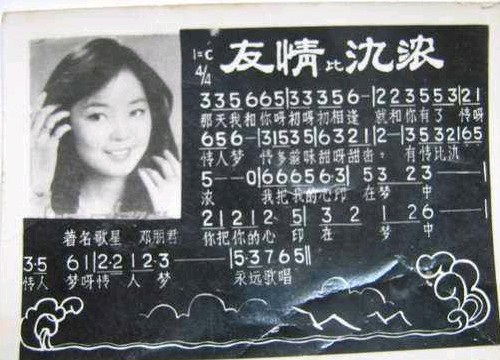 1=C 4/4 友情比氿浓
335665|33356-|223553|21
那天我和你呀初呀初相逢 就和你有了 情呀
656-|31535|6321|2-|3532|65
情人梦 情多滋味甜呀甜密; 有情比氿
5--0|66656·3|53 23--
浓 我把我的心印 在梦 中
21212·5|32 126--
你把你的心 印 在 梦 中
著名歌星 邓丽君
3·5 61|2·2|12·3--|5·3765||
情人 梦呀情 人 梦 永远歌唱